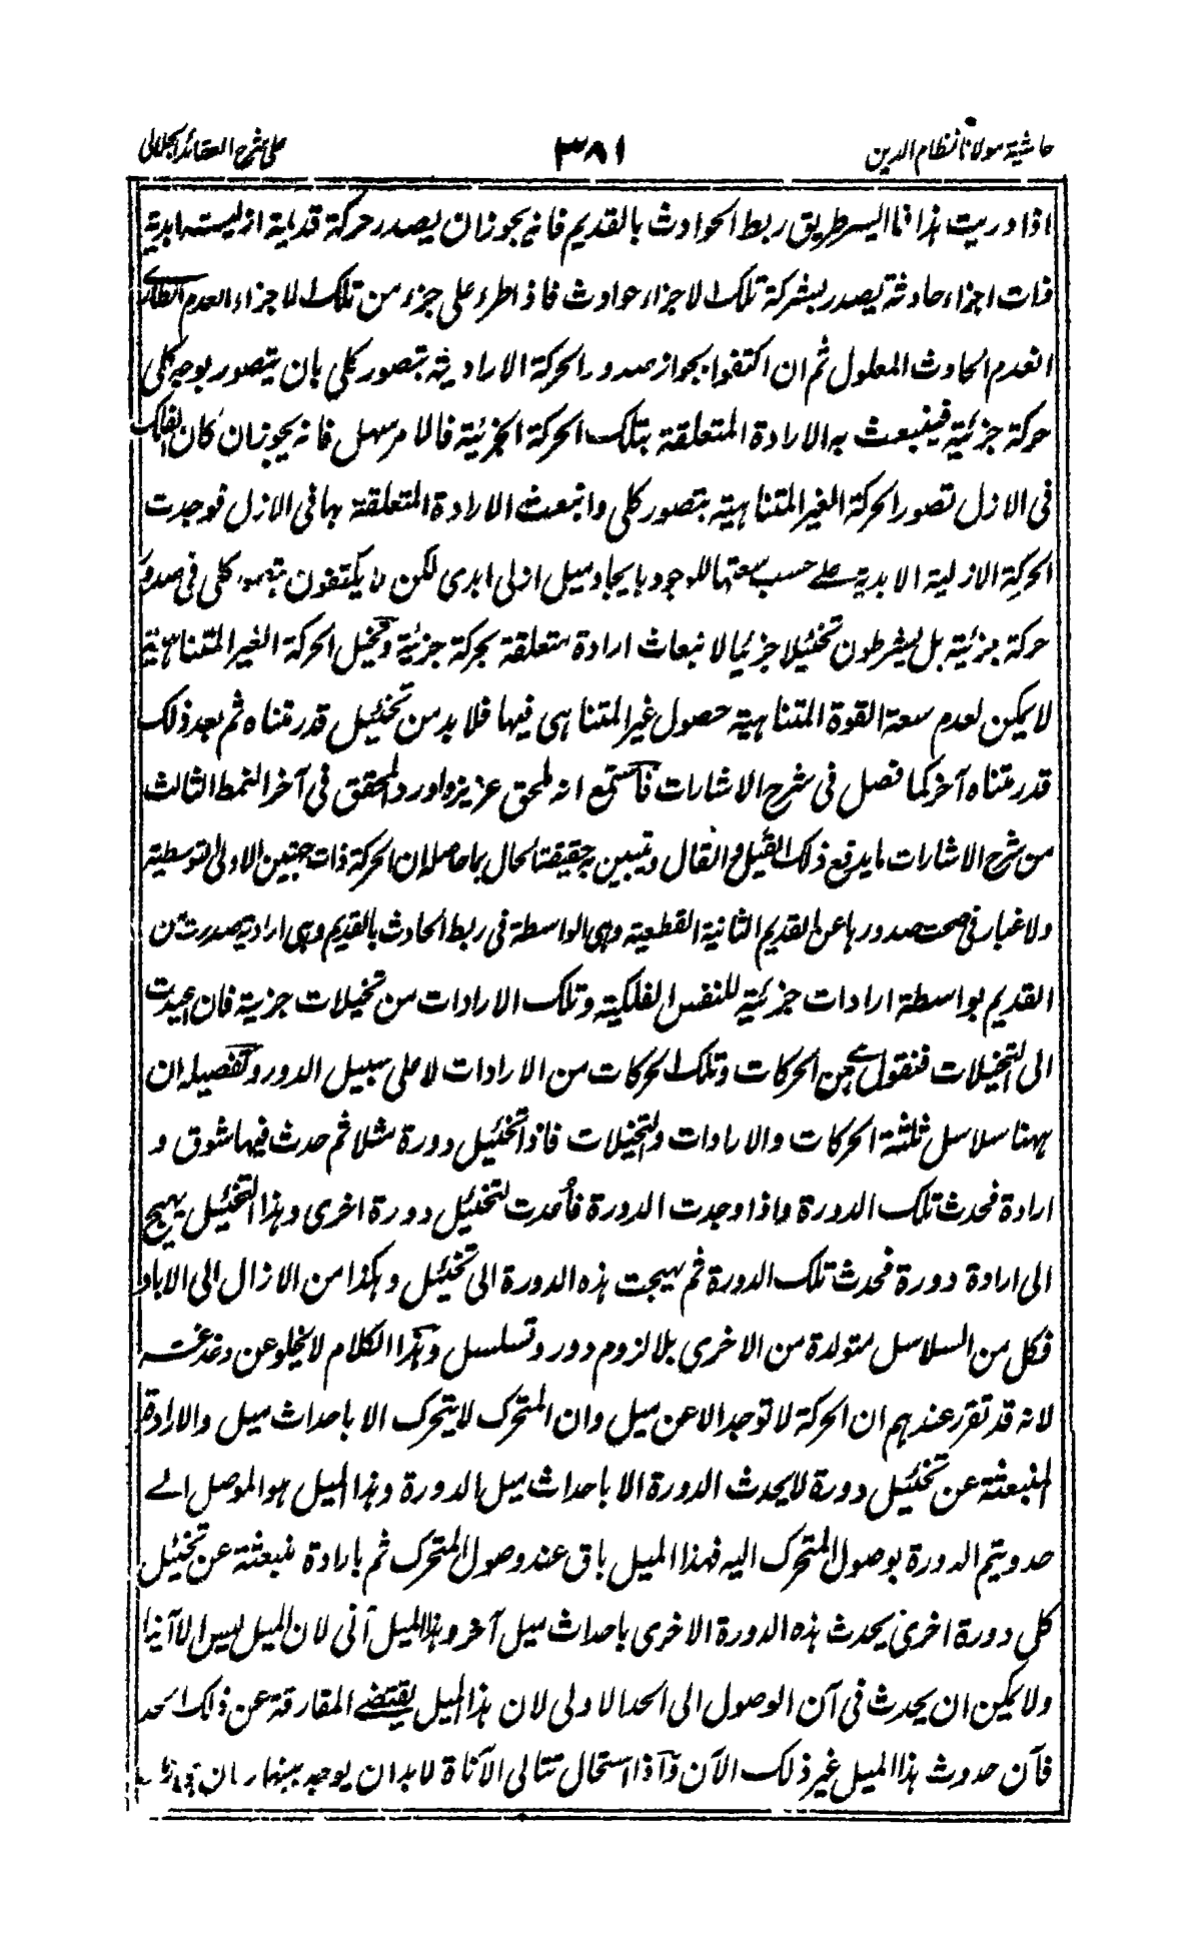 حاشية مولانا نظام الدين
٣٨١
على شرح العقائد الجلالى
اذا دريت هذا فما اليسر طريق ربط الحوادث بالقديم فانه يجوز ان يصدر حركة قديمة ازلية ابدية
ذات اجزاء حادثة يصدر بشركة تلك الاجزاء حوادث فاذا طرء على جزء من تلك الاجزاء العدم الطارى
انعدم الحادث المعلول ثم ان اكتفوا بجواز صدور الحركة الارادية بتصور كلى بان يتصور بوجه كلى
حركة جزئية فينبعث به الارادة المتعلقة بتلك الحركة الجزئية فالامر سهل فانه يجوز ان كان الفلك
فى الازل تصور الحركة الغير المتناهية بتصور كلى وانبعث الارادة المتعلقة بها فى الازل فوجدت
الحركة الازلية الابدية على حسب سعتها للوجود بايجاد ميل ازلى ابدى لكن لا يكتفون بتصور كلى فى صدور
حركة جزئية بل يشرطون تخئيلا جزئيا لانبعاث ارادة متعلقة بحركة جزئية وتخيل الحركة الغير المتناهية
لا يمكن لعدم سعة القوة المتناهية حصول غير المتناهى فيها فلا بد من تخئيل قدر متناه ثم بعد ذلك
قدر متناه آخر كما فصل فى شرح الاشارات فاستمع انه لمحق عزيز واورد المحقق فى آخر النمط الثالث
من شرح الاشارات ما يدفع ذلك القيل والقال وتبيين حقيقة الحال بما حاصله ان الحركة ذات جهتين الاولى التوسطية
ولا غبار فى صحت صدورها عن القديم الثانية القطعية وهى الواسطة فى ربط الحادث بالقديم وهى ارادية صدرت من
القديم بواسطة ارادات جزئية للنفس الفلكية وتلك الارادات من تخيلات جزية فان اعيدت
الى التخيلات فنقول هى من الحركات وتلك الحركات من الارادات لا على سبيل الدور وتفصيله ان
ههنا سلاسل ثلثة الحركات والارادات والتخيلات فاذا تخئيل دورة مثلا ثم حدث فيها شوق و
ارادة فحدث تلك الدورة واذا وجدت الدورة فأعدت لتخئيل دورة اخرى وهذا التخئيل يهيج
الى ارادة دورة فحدث تلك الدورة ثم يهيجت هذه الدورة الى تخئيل وهكذا من الازال الى الاباد
فكل من السلاسل متولدة من الاخرى بلا لزوم دور وتسلسل وهذا الكلام لا يخلو عن دغدغة
لانه قد تقرر عندهم ان الحركة لا توجد الا عن ميل وان المتحرك لا يتحرك الا باحداث ميل والارادة
المنبعثة عن تخئيل دورة لا يحدث الدورة الا باحداث ميل الدورة وهذا الميل هو الموصل الى
حد ويتم الدورة بوصول المتحرك اليه فهذا الميل باق عند وصول المتحرك ثم بارادة منبعثة عن تخئيل
كل دورة اخرى يحدث هذه الدورة الاخرى باحداث ميل آخر وهذا الميل آنى لان الميل ليس الا آنيا
ولا يمكن ان يحدث فى آن الوصول الى الحد الاولى لان هذا الميل يقتضى المفارقة عن ذلك الحد
فآن حدوث هذا الميل غير ذلك الآن وآذا استحال تتالى الآناة لا بد ان يوجد بينهما